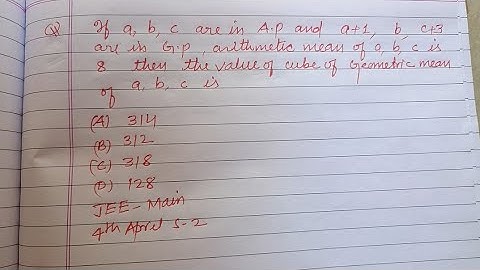 Q If a, b, c are in A.P and a+1, b, c+3
are in G.P, arithmetic mean of a, b, c is
8 then the value of cube of Geometric mean
of a, b, c is
(A) 314
(B) 312
(C) 318
(D) 128
JEE - Main
4th April S-2